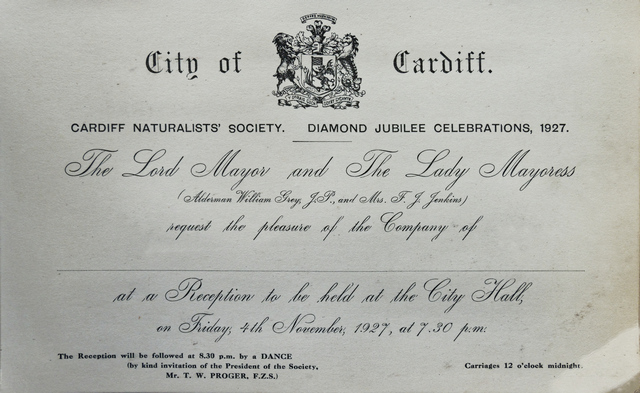 City of Cardiff.
CARDIFF NATURALISTS' SOCIETY. DIAMOND JUBILEE CELEBRATIONS, 1927.
The Lord Mayor and The Lady Mayoress
(Alderman William Grey, J.P., and Mrs. F. J. Jenkins)
request the pleasure of the Company of
at a Reception to be held at the City Hall,
on Friday, 4th November, 1927, at 7.30 p.m.
The Reception will be followed at 8.30 p.m. by a DANCE
(by kind invitation of the President of the Society,
Mr. T. W. PROGER, F.Z.S.)
Carriages 12 o'clock midnight.